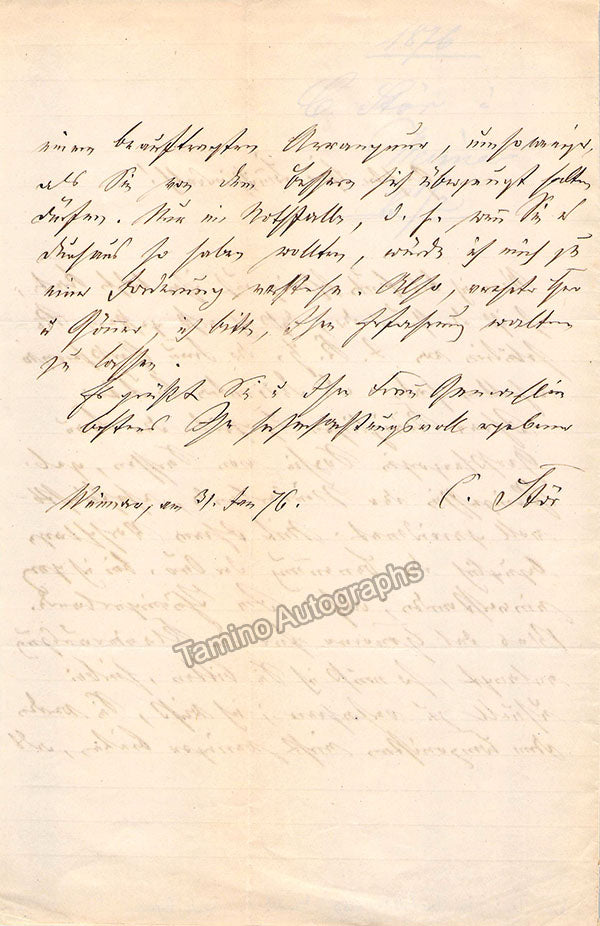 1876
C. Stör
einem beauftragten Arrangeur, umsoweniger,
als Sie von dem bessern sich überzeugt halten
dürfen. Nur im Nothfalle, d. h. wenn Sie es
durchaus so haben wollten, würde ich mich zu
einer Forderung verstehn. Also, verehrter Herr
u Gönner, ich bitte, Ihre Erfahrung walten
zu lassen.
Es grüßt Sie u Ihre Frau Gemahlin
bestens Ihr hochachtungsvoll ergebener
Weimar, am 31. Jan 76. C. Stör
Tamino Autographs